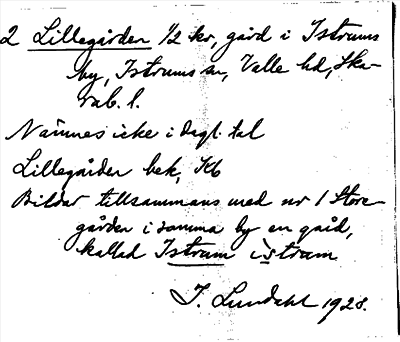 2 Lillegården 1/2 kr, gård i Istrums
by, Istrums sn, Valle hd, Ska-
rab. l.
Nämnes icke i dagl. tal
Lillegården bek, Kb
Bildar tillsammans med nr 1 Store-
gården i samma by en gård,
kallad Istrum istrum
J. Lundahl 1928.